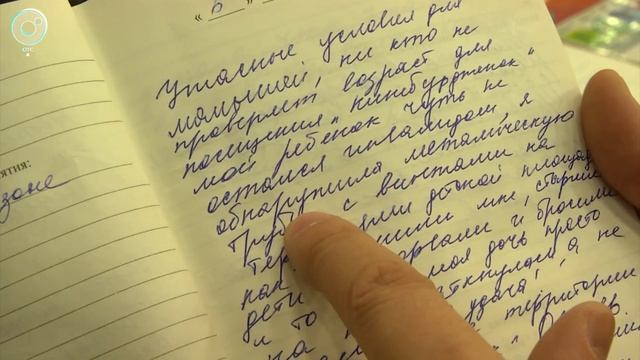 ОТС
« 6 »
ятия:
зоне
Ужасные условия для
малышей, ни кто не
проверяет возраст для
посещения
мой ребенок чуть не
остался инвалидом, я
обнаружила металическую
трубу с винтами на
территории детской площадки
мне, старшие
и бросили
дети моя дочь просто
и то наткнулась, а не
на удача,
территории